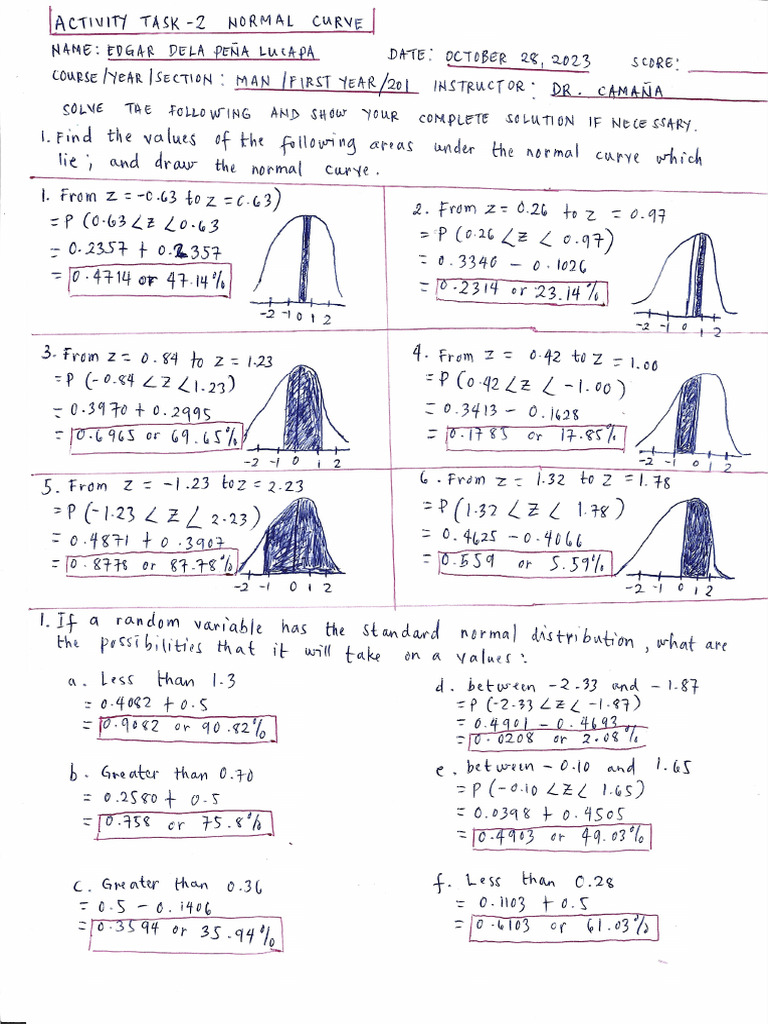 ACTIVITY TASK-2 NORMAL CURVE
NAME: EDGAR DELA PEÑA LUCAPA DATE: OCTOBER 28, 2023 SCORE:
COURSE/YEAR/SECTION: MAN/FIRST YEAR/201 INSTRUCTOR: DR. CAMAÑA
SOLVE THE FOLLOWING AND SHOW YOUR COMPLETE SOLUTION IF NECESSARY.
1. Find the values of the following areas under the normal curve which
lie; and draw the normal curve.
1. From z = -0.63 to z = 0.63)
= P (0.63 < Z < 0.63
= 0.2357 + 0.2357
= 0.4714 or 47.14%
-2 -1 0 1 2
2. From z = 0.26 to z = 0.97
= P (0.26 < Z < 0.97)
= 0.3340 - 0.1026
= 0.2314 or 23.14%
-2 -1 0 1 2
3. From z = 0.84 to z = 1.23
= P (-0.84 < Z < 1.23)
= 0.3970 + 0.2995
= 0.6965 or 69.65%
-2 -1 0 1 2
4. From z = 0.42 to z = 1.00
= P (0.42 < Z < -1.00)
= 0.3413 - 0.1628
= 0.1785 or 17.85%
-2 -1 0 1 2
5. From z = -1.23 to z = 2.23
= P (-1.23 < Z < 2.23)
= 0.4871 + 0.3907
= 0.8778 or 87.78%
-2 -1 0 1 2
6. From z = 1.32 to z = 1.78
= P (1.32 < Z < 1.78)
= 0.4625 - 0.4066
= 0.559 or 5.59%
-2 -1 0 1 2
1. If a random variable has the standard normal distribution, what are
the possibilities that it will take on a values:
a. Less than 1.3
= 0.4082 + 0.5
= 0.9082 or 90.82%
b. Greater than 0.70
= 0.2580 + 0.5
= 0.758 or 75.8%
c. Greater than 0.36
= 0.5 - 0.1406
= 0.3594 or 35.94%
d. between -2.33 and -1.87
= P (-2.33 < Z < -1.87)
= 0.4901 - 0.4693
= 0.0208 or 2.08%
e. between -0.10 and 1.65
= P (-0.10 < Z < 1.65)
= 0.0398 + 0.4505
= 0.4903 or 49.03%
f. Less than 0.28
= 0.1103 + 0.5
= 0.6103 or 61.03%